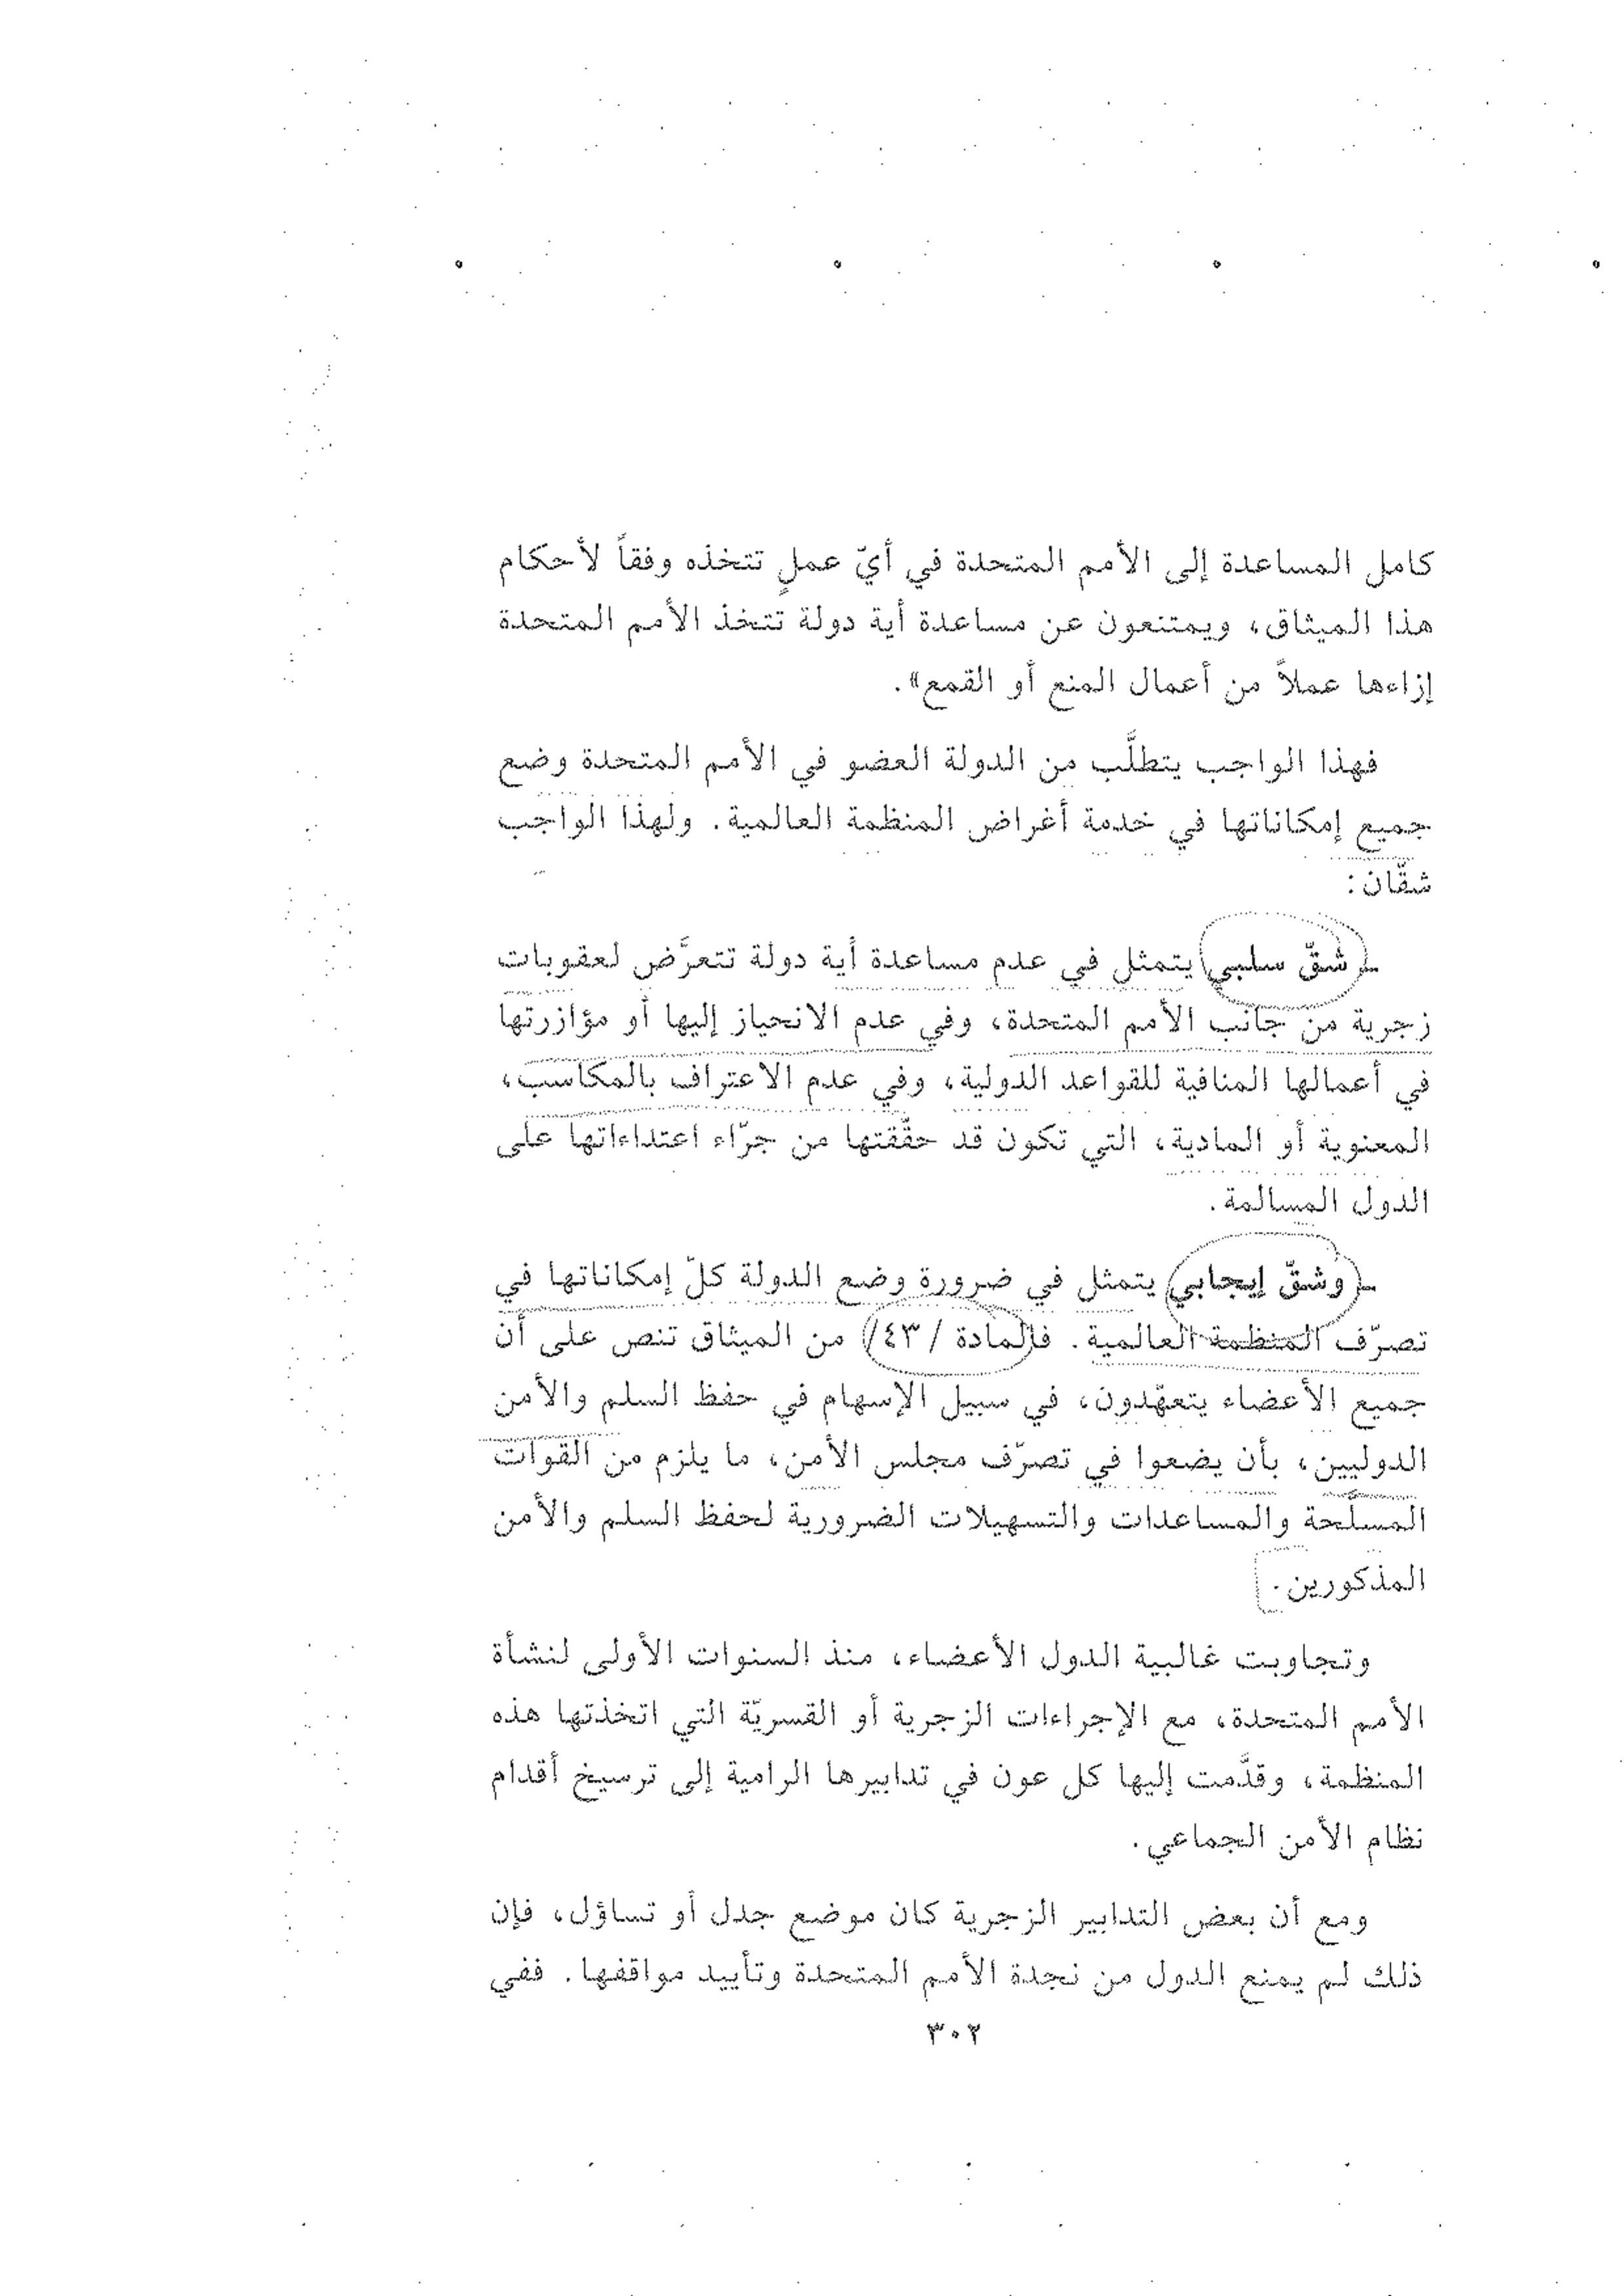 كامل المساعدة إلى الأمم المتحدة في أيّ عملٍ تتخذه وفقاً لأحكام
هذا الميثاق، ويمتنعون عن مساعدة أية دولة تتخذ الأمم المتحدة
إزاءها عملاً من أعمال المنع أو القمع».
فهذا الواجب يتطلَّب من الدولة العضو في الأمم المتحدة وضع
جميع إمكاناتها في خدمة أغراض المنظمة العالمية. ولهذا الواجب
شقّان:
ـ شقّ سلبي يتمثل في عدم مساعدة أية دولة تتعرَّض لعقوبات
زجرية من جانب الأمم المتحدة، وفي عدم الانحياز إليها أو مؤازرتها
في أعمالها المنافية للقواعد الدولية، وفي عدم الاعتراف بالمكاسب،
المعنوية أو المادية، التي تكون قد حقّقتها من جرّاء اعتداءاتها على
الدول المسالمة.
ـ وشقّ إيجابي يتمثل في ضرورة وضع الدولة كلّ إمكاناتها في
تصرّف المنظمة العالمية. فالمادة /٤٣/ من الميثاق تنص على أن
جميع الأعضاء يتعهّدون، في سبيل الإسهام في حفظ السلم والأمن
الدوليين، بأن يضعوا في تصرّف مجلس الأمن، ما يلزم من القوات
المسلّحة والمساعدات والتسهيلات الضرورية لحفظ السلم والأمن
المذكورين.
وتجاوبت غالبية الدول الأعضاء، منذ السنوات الأولى لنشأة
الأمم المتحدة، مع الإجراءات الزجرية أو القسريّة التي اتخذتها هذه
المنظمة، وقدَّمت إليها كل عون في تدابيرها الرامية إلى ترسيخ أقدام
نظام الأمن الجماعي.
ومع أن بعض التدابير الزجرية كان موضع جدل أو تساؤل، فإن
ذلك لم يمنع الدول من نجدة الأمم المتحدة وتأييد مواقفها. ففي
٣٠٢